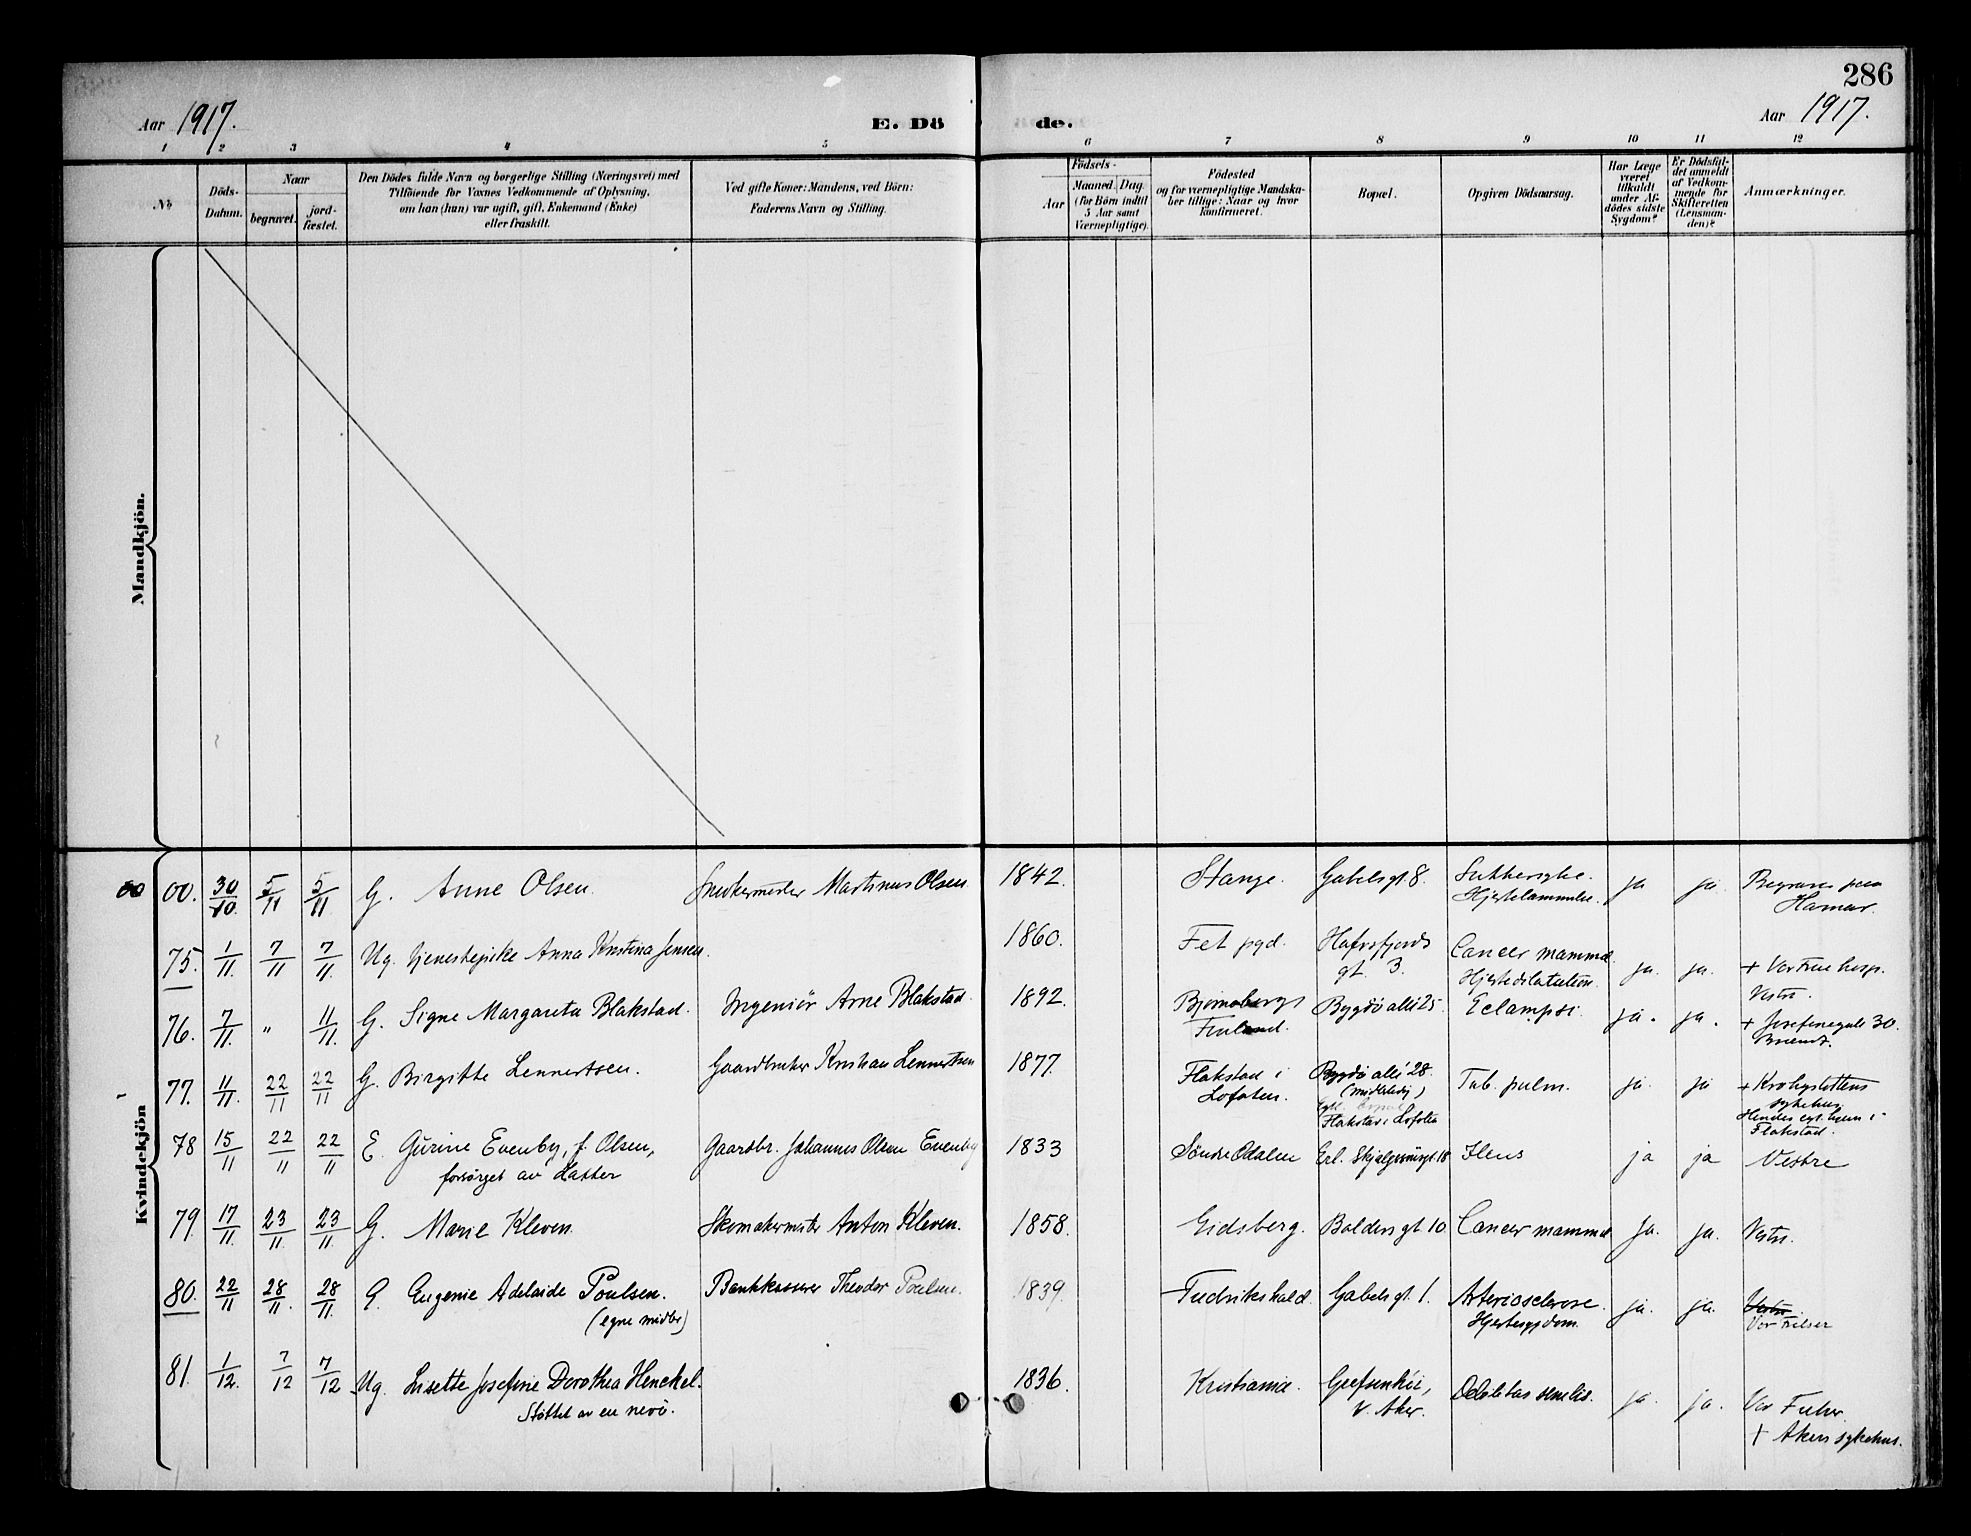 286
Aar 1917.
E. Dö
de.
Aar 1917.
1 2 3 4 5 6 7 8 9 10 11 12
No
Döds-
Datum.
Naar
begravet.
jord-
fæstet.
Den Dödes fulde Navn og borgerlige Stilling (Næringsvei) med
Tilföiende for Voxnes Vedkommende af Oplysning,
om han (hun) var ugift, gift, Enkemand (Enke)
eller fraskilt.
Ved gifte Koner: Mandens, ved Börn:
Faderens Navn og Stilling.
Födsels-
Aar
Maaned. Dag.
(for Börn indtil
5 Aar samt
Værnepligtige).
Födested
og for værnepligtige Mandska-
ber tillige: Naar og hvor
konfirmeret.
Bopæl.
Opgiven Dödsaarsag.
Har Læge
været
tilkaldt
under Af-
dödes sidste
Sygdom?
Er Dödsfal-
det anmeldt
af Vedkom-
mende for
Skifteretten
(Lensman-
den)?
Anmærkninger.
Mandkjön.
Kvindekjön
00. 30/10. 5/11 5/11 G. Anne Olsen. Snekkermester Martinus Olsen 1842. Stange. Gabelsgt 8. Sukkersyke. ja ja. Begraves paa
Hjertelammelse. Hamar.
75. 1/11. 7/11 7/11. Ug. tjenestepike Anna Kristina Jensen. 1860. Fet pgd. Hafrsfjords Cancer mammæ ja. ja. + Vor Frue hosp.
gt. 3. Hjertedilatation. Vestre.
76. 7/11. " 11/11. G. Signe Margareta Blakstad. Ingeniör Arne Blakstad. 1892. Bjørneborg Bygdö allé 25. Eclampsi. ja. ja. + Josefinegate 30.
Finland.
77. 11/11. 22/11 22/11 G. Birgitte Lennertsen. Gaardbruker Kristian Lennertsen 1877. Flakstad i Bygdö allé 28. Tub. pulm. ja. ja + Krohgstøttens
Lofoten. (midlertidig) sykehus.
Flakstad i Lofoten Hendes egt. hjem i
Flakstad.
78 15/11 22/11 22/11 E. Gurine Evenby, f. Olsen, Gaardbr. Johannes Olsen Evenby 1833 Söndre Odalen Erl. Skjalgssönsgt. 18 Ileus ja ja Vestre
forsörget av datter
79. 17/11. 23/11. 23/11. G. Marie Kleven. Skomakermester Anton Kleven. 1858. Eidsberg. Balders gt. 10. Cancer mammæ ja. ja. Vestre.
80. 22/11 28/11. 28/11. G. Eugenie Adelaide Poulsen. Bankkasserer Theodor Poulsen. 1839 Fredrikshald. Gabels gt. 1. Arteriosclerose. ja. ja. Vestre
(egne midler) Hjertesygdom. Vor Frelser
81. 1/12. 7/12 7/12 Ug. Lisette Josefine Dorothea Henckel. 1836. Kristiania. Grefsenlie, Debilitas senilis. ja. ja. Vor Frelser.
Støttet av en nevø. V. Aker. + Akers sykehus.